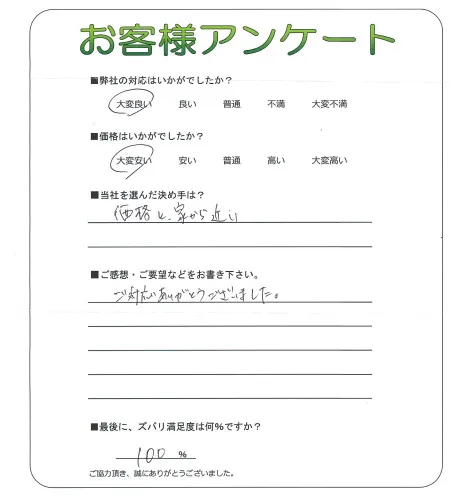 お客様アンケート
■弊社の対応はいかがでしたか？
大変良い 良い 普通 不満 大変不満
■価格はいかがでしたか？
大変安い 安い 普通 高い 大変高い
■当社を選んだ決め手は？
価格と、家から近い
■ご感想・ご要望などをお書き下さい。
ご対応ありがとうございました。
■最後に、ズバリ満足度は何%ですか？
100 %
ご協力頂き、誠にありがとうございました。